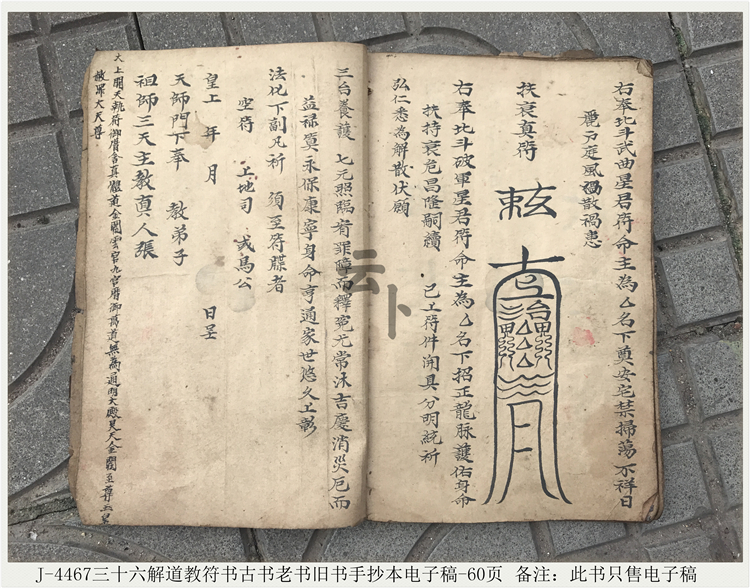 右奉北斗武曲星君符命主為厶名下奠安宅禁掃蕩不祥日
門戶庭風禍散禍患
扶衰真符
右奉北斗破軍星君符命主為厶名下招正龍脉護佑身命
扶持衰危昌隆嗣續 已上符件開具分明統祈
弘仁悉為解散伏願
三台養護 七元照臨宥罪障而釋冤尤常沐吉慶消災厄而
益祿算永保康寧身命亨通家世悠久上彰
法化下副凡祈 須至符牒者
空符 土地司 武馬公
皇上 年 月 日呈
天師門下奉 教弟子
祖師三天主教真人張
大上開天執符御曆含真體道金闕雲宮九宮曆御萬道無為通明大殿昊天金闕至尊玉皇
赦罪大天尊
云卜
J-4467三十六解道教符书古书老书旧书手抄本电子稿-60页 备注：此书只售电子稿